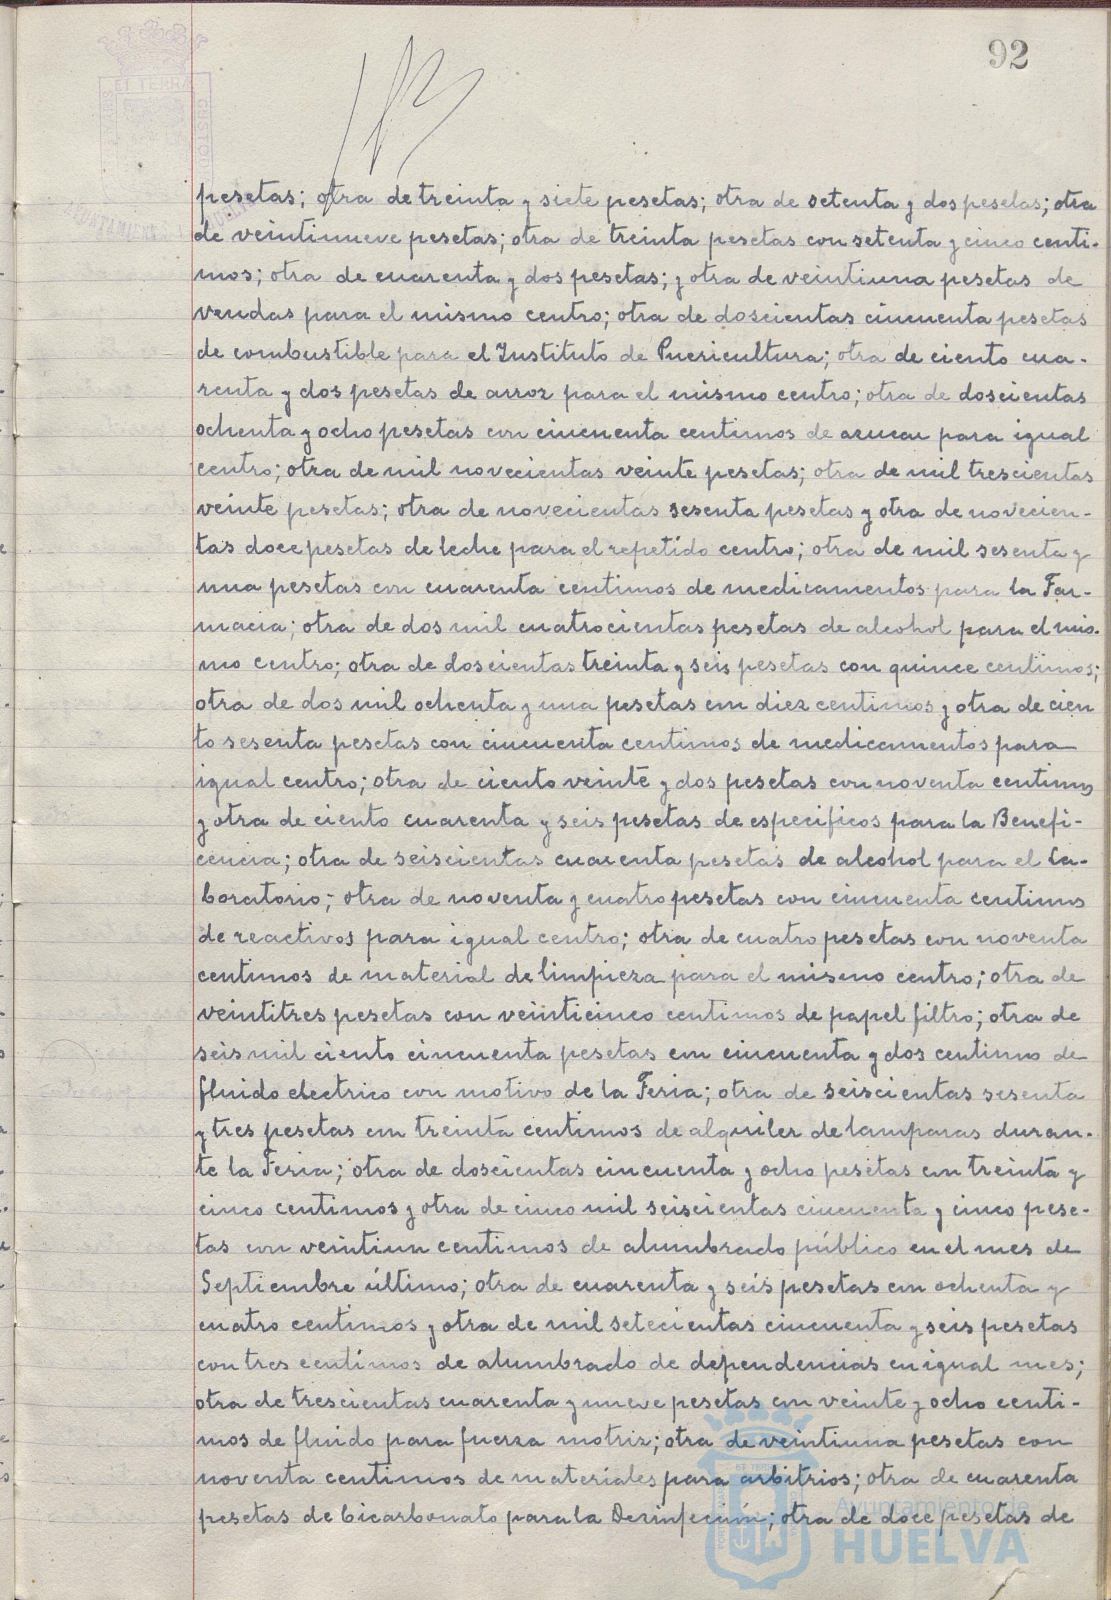 92
ET TERRÆ CUSTODI
AYUNTAMIENTO
pesetas; otra de treinta y siete pesetas; otra de setenta y dos pesetas; otra
de veintinueve pesetas; otra de treinta pesetas con setenta y cinco centi-
mos; otra de cuarenta y dos pesetas; y otra de veintiuna pesetas de
vendas para el mismo centro; otra de doscientas cincuenta pesetas
de combustible para el Instituto de Puericultura; otra de ciento cua-
renta y dos pesetas de arroz para el mismo centro; otra de doscientas
ochenta y ocho pesetas con cincuenta centimos de azucar para igual
centro; otra de mil novecientas veinte pesetas; otra de mil trescientas
veinte pesetas; otra de novecientas sesenta pesetas y otra de novecien-
tas doce pesetas de leche para el repetido centro; otra de mil sesenta y
una pesetas con cuarenta centimos de medicamentos para la Far-
macia; otra de dos mil cuatrocientas pesetas de alcohol para el mis-
mo centro; otra de doscientas treinta y seis pesetas con quince centimos;
otra de dos mil ochenta y una pesetas con diez centimos y otra de cien
to sesenta pesetas con cincuenta centimos de medicamentos para
igual centro; otra de ciento veinte y dos pesetas con noventa centimos
y otra de ciento cuarenta y seis pesetas de especificos para la Benefi-
cencia; otra de seiscientas cuarenta pesetas de alcohol para el La-
boratorio; otra de noventa y cuatro pesetas con cincuenta centimos
de reactivos para igual centro; otra de cuatro pesetas con noventa
centimos de material de limpieza para el mismo centro; otra de
veintitres pesetas con veinticinco centimos de papel filtro; otra de
seis mil ciento cincuenta pesetas con cincuenta y dos centimo de
fluido electrico con motivo de la Feria; otra de seiscientas sesenta
y tres pesetas con treinta centimos de alquiler de lamparas duran-
te la Feria; otra de doscientas cincuenta y ocho pesetas con treinta y
cinco centimos y otra de cinco mil seiscientas cincuenta y cinco pese-
tas con veintiun centimos de alumbrado público en el mes de
Septiembre último; otra de cuarenta y seis pesetas con ochenta y
cuatro centimos y otra de mil setecientas cincuenta y seis pesetas
con tres centimos de alumbrado de dependencias en igual mes;
otra de trescientas cuarenta y nueve pesetas con veinte y ocho centi-
mos de fluido para fuerza motriz; otra de veintiuna pesetas con
noventa centimos de materiales para arbitrios; otra de cuarenta
pesetas de bicarbonato para la Desinfección; otra de doce pesetas de
Ayuntamiento de
HUELVA